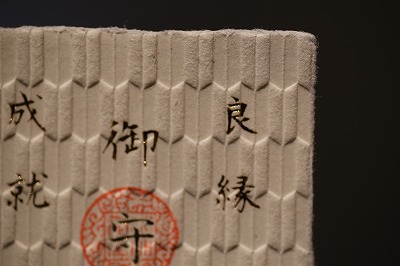 良縁
御守
成就